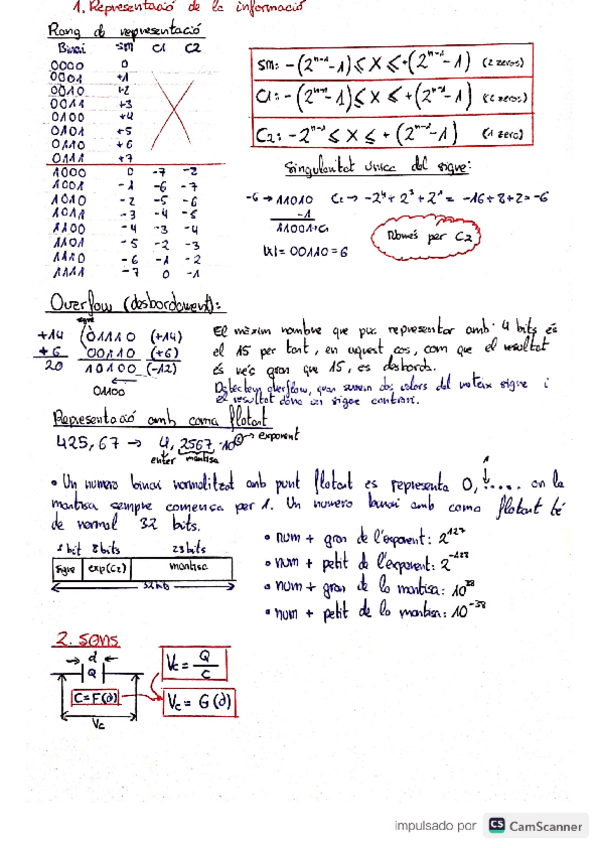 1. Representació de la informació
Rang de representació
Binari SM C1 C2
0000 0
0001 +1
0010 +2
0011 +3
0100 +4
0101 +5
0110 +6
0111 +7
1000 0 -7 -8
1001 -1 -6 -7
1010 -2 -5 -6
1011 -3 -4 -5
1100 -4 -3 -4
1101 -5 -2 -3
1110 -6 -1 -2
1111 -7 0 -1
SM: -(2ⁿ⁻¹-1) ≤ X ≤ +(2ⁿ⁻¹-1) (2 zeros)
C1: -(2ⁿ⁻¹-1) ≤ X ≤ +(2ⁿ⁻¹-1) (2 zeros)
C2: -2ⁿ⁻¹ ≤ X ≤ +(2ⁿ⁻¹-1) (1 zero)
Singularitat única del signe:
-6 → 11010 C2 → -2⁴+2³+2¹ = -16+8+2=-6
-1
11001 → C1
|X| = 00110 = 6
Només per C2
Overflow (desbordament):
signe
+14 01110 (+14)
+6 00110 (+6)
20 10100 (-12)
01100
El màxim nombre que puc representar amb 4 bits és
el 15 per tant, en aquest cas, com que el resultat
és més gran que 15, es desborda.
Detectem overflow, quan sumem dos valors del mateix signe i
el resultat dóna un signe contrari.
Representació amb coma flotant
425,67 → 4,2567·10² → exponent
enter mantisa
• Un numero binari normalitzat amb punt flotant es representa 0,1.... on la
mantisa sempre comença per 1. Un numero binari amb coma flotant té
de normal 32 bits.
1 bit 8 bits 23 bits
signe exp(C2) mantisa
32 bits
• num + gran de l'exponent: 2¹²⁷
• num + petit de l'exponent: 2⁻¹²⁸
• num + gran de la mantisa: 10³⁸
• num + petit de la mantisa: 10⁻³⁸
2. Sons
d
Q
C = F(d)
Vc
Vc = Q/C
Vc = G(d)
impulsado por CS CamScanner